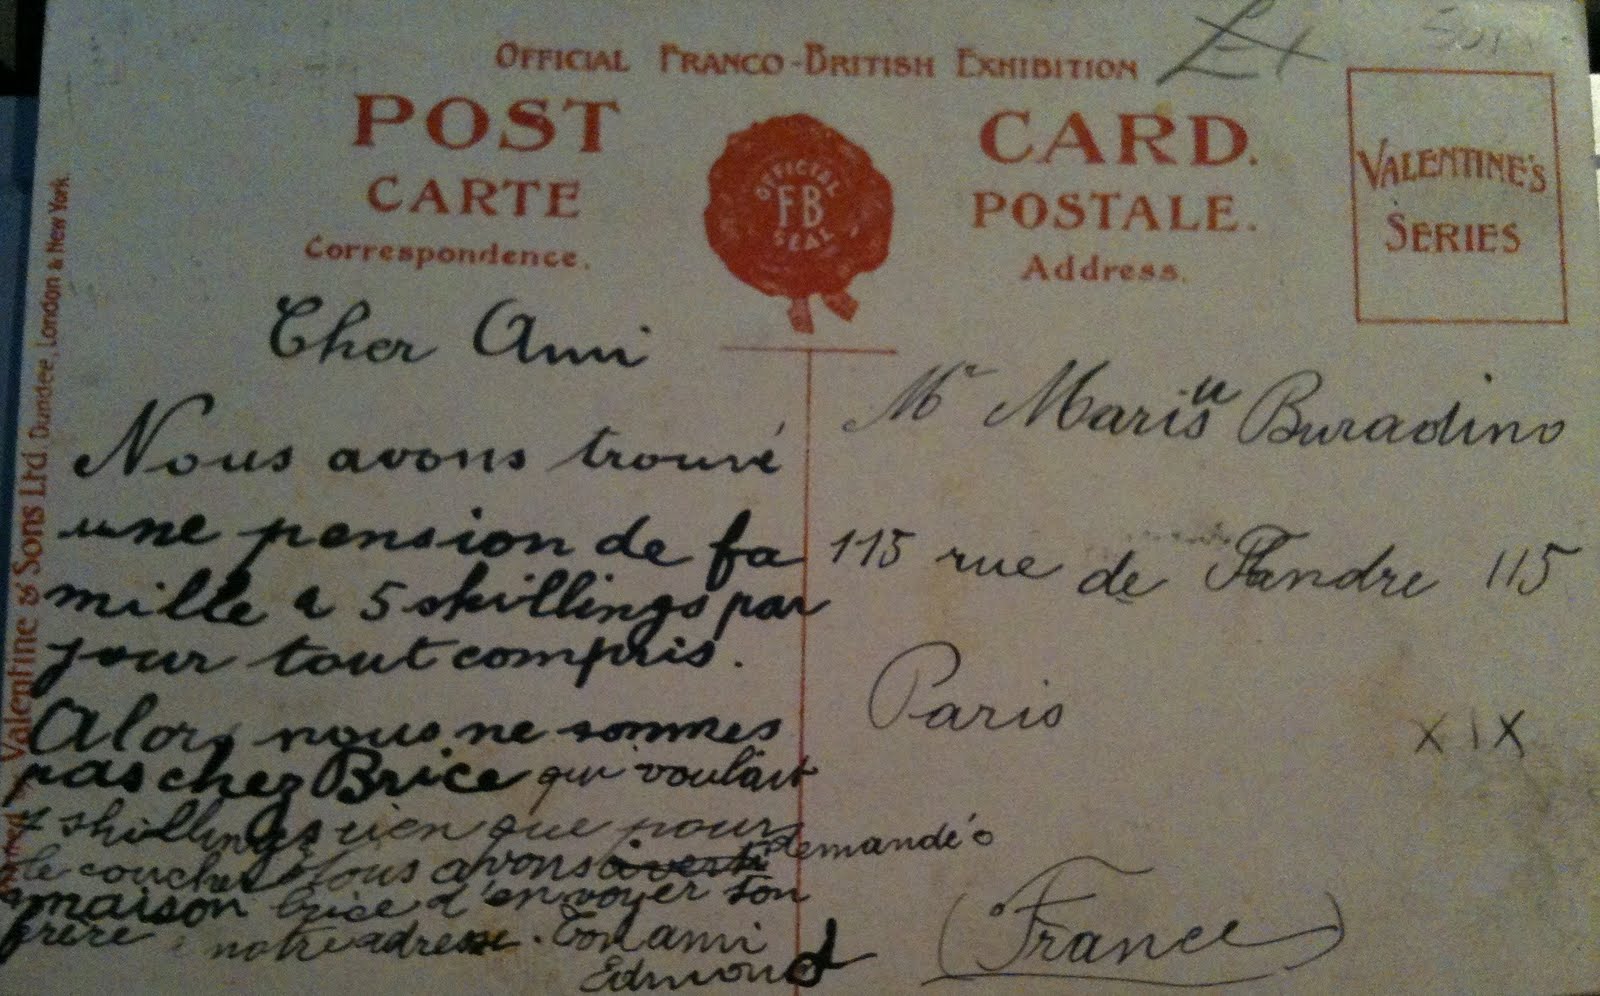 OFFICIAL FRANCO-BRITISH EXHIBITION
£1
POST CARD.
CARTE POSTALE.
Correspondence.
Address.
OFFICIAL
FB
SEAL
VALENTINE'S
SERIES
Valentine & Sons Ltd Dundee, London & New York
Cher Ami
Nous avons trouvé
une pension de fa
mille a 5 skillings par
jour tout compris.
Alors nous ne sommes
pas chez Brice qui voulait
7 skillings rien que pour
le coucher Nous avons averti demandé a
maison brice d'envoyer ton
frère notre adresse. Ton ami
Edmond
Mr Marius Buradino
115 rue de Flandre 115
Paris
XIX
(France)